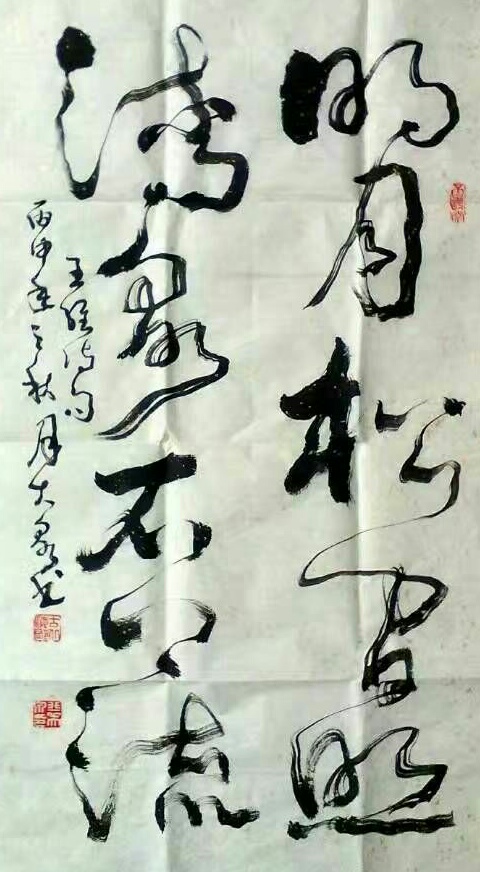 明月松间照
清泉石上流
王维诗句
丙申年之秋月大泉书